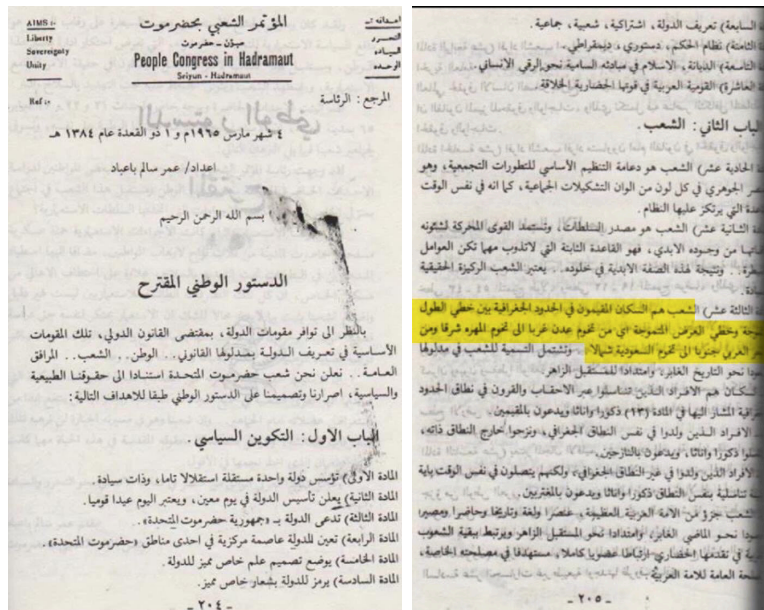 AIMS :-
Liberty
Sovereignty
Unity
Ref :-
المؤتمر الشعبي بحضرموت
سيؤن - حضرموت
People Congress in Hadramaut
Seiyun - Hadramaut
اهدافه :-
التحرر
السيادة
الوحدة
المرجع : الرئاسة
٤ شهر مارس ١٩٦٥م و ١ ذو القعدة عام ١٣٨٤ هـ
اعداد/ عمر سالم باعباد
بسم الله الرحمن الرحيم
الدستور الوطني المقترح
بالنظر الى توافر مقومات الدولة، بمقتضى القانون الدولي، تلك المقومات
الأساسية في تعريف الدولة بمدلولها القانوني.. الوطن.. الشعب.. المرافق
العامة.. نعلن نحن شعب حضرموت المتحدة استنادا الى حقوقنا الطبيعية
والسياسية، اصرارنا وتصميمنا على الدستور الوطني طبقا للاهداف التالية:
الباب الاول: التكوين السياسي.
المادة (الاولى) تؤسس دولة واحدة مستقلة استقلالا تاما، وذات سيادة.
المادة (الثانية) يعلن تأسيس الدولة في يوم معين، ويعتبر اليوم عيدا قوميا.
المادة (الثالثة) تدعى الدولة بـ «جمهورية حضرموت المتحدة».
المادة (الرابعة) تعين للدولة عاصمة مركزية في احدى مناطق «حضرموت المتحدة».
المادة (الخامسة) يوضع تصميم علم خاص مميز للدولة.
المادة (السادسة) يرمز للدولة بشعار خاص مميز.
- ٢٠٤ -
السابعة) تعريف الدولة، اشتراكية، شعبية، جماعية.
الثامنة) نظام الحكم، دستوري، ديمقراطي.
التاسعة) الديانة، الاسلام في مبادئه السامية نحو الرقي الانساني.
العاشرة) القومية العربية في قوتها الحضارية الخلاقة.
الباب الثاني: الشعب.
الحادية عشر) الشعب هو دعامة التنظيم الأساسي للتطورات التجمعية، وهو
الجوهري في كل لون من الوان التشكيلات الجماعية، كما انه في نفس الوقت
التي يرتكز عليها النظام.
الثانية عشر) الشعب هو مصدر السلطات، وتستمد القوى المحركة لشئونه
من وجوده الابدي، فهو القاعدة الثابتة التي لاتذوب مهما تكن العوامل
ونتيجة لهذه الصفة الابدية في خلوده.. يعتبر الشعب الركيزة الحقيقية
الثالثة عشر) الشعب هم السكان المقيمون في الحدود الجغرافية بين خطي الطول
وخطي العرض المتموجة اي من تخوم عدن غربا الى تخوم المهره شرقا ومن
العربي جنوبا الى تخوم السعودية شمالا، وتشتمل التسمية للشعب في مدلولها
نحو التاريخ الغابر، وامتدادا نحو المستقبل الزاهر.
هم الافراد الذين تناسلوا عبر الاحقاب والقرون في نطاق الحدود
المشار اليها في المادة (١٣) ذكورا واناثا ويدعون بالمقيمين.
الافراد الذين ولدوا في نفس النطاق الجغرافي، ونزحوا خارج النطاق ذاته،
ذكورا واناثا، ويدعون بالنازحين.
الذين ولدوا في غير النطاق الجغرافي، ولكنهم يتصلون في نفس الوقت باية
تناسلية بنفس النطاق ذكورا واناثا ويدعون بالمغتربين.
الشعب جزء من الامة العربية العظيمة، عنصرا ولغة وتاريخا وحاضرا ومصيرا
نحو الماضي الغابر، وامتدادا نحو المستقبل الزاهر ويرتبط ببقية الشعوب
في تقدمها الحضاري ارتباطا عضويا كاملا، مستهدفا في مصلحته الخاصة،
العامة للامة العربية.
- ٢٠٥ -